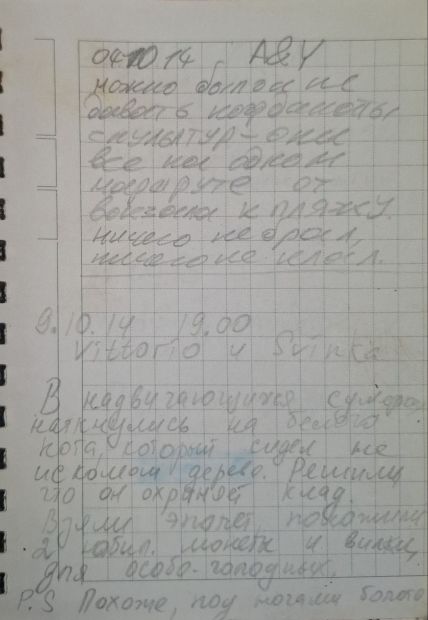 04.10.14 A&Y
можно было и не
давать координаты
скульптур - они
все на одном
маршруте от
вокзала к пляжу.
ничего не брал,
ничего не клал.
9.10.14 19.00
Vittorio и Svinka
В надвигающихся сумерках
наткнулись на белого
кота, который сидел на
искомом дереве. Решили
что он охраняет клад.
Взяли эполет, положили
2 юбил. монеты и вилки,
для особо-голодных.
P.S Похоже, под ногами болото